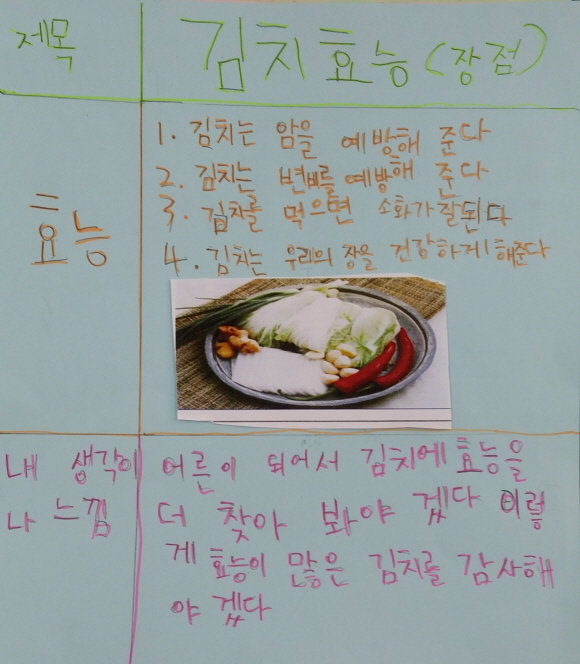 제목
김치효능(장점)
효능
1. 김치는 암을 예방해 준다
2. 김치는 변비를 예방해 준다
3. 김치를 먹으면 소화가 잘된다
4. 김치는 우리의 장을 건강하게 해준다
내 생각이
나 느낌
어른이 되어서 김치에 효능을
더 찾아 봐야 겠다 이렇
게 효능이 많은 김치를 감사해
야 겠다